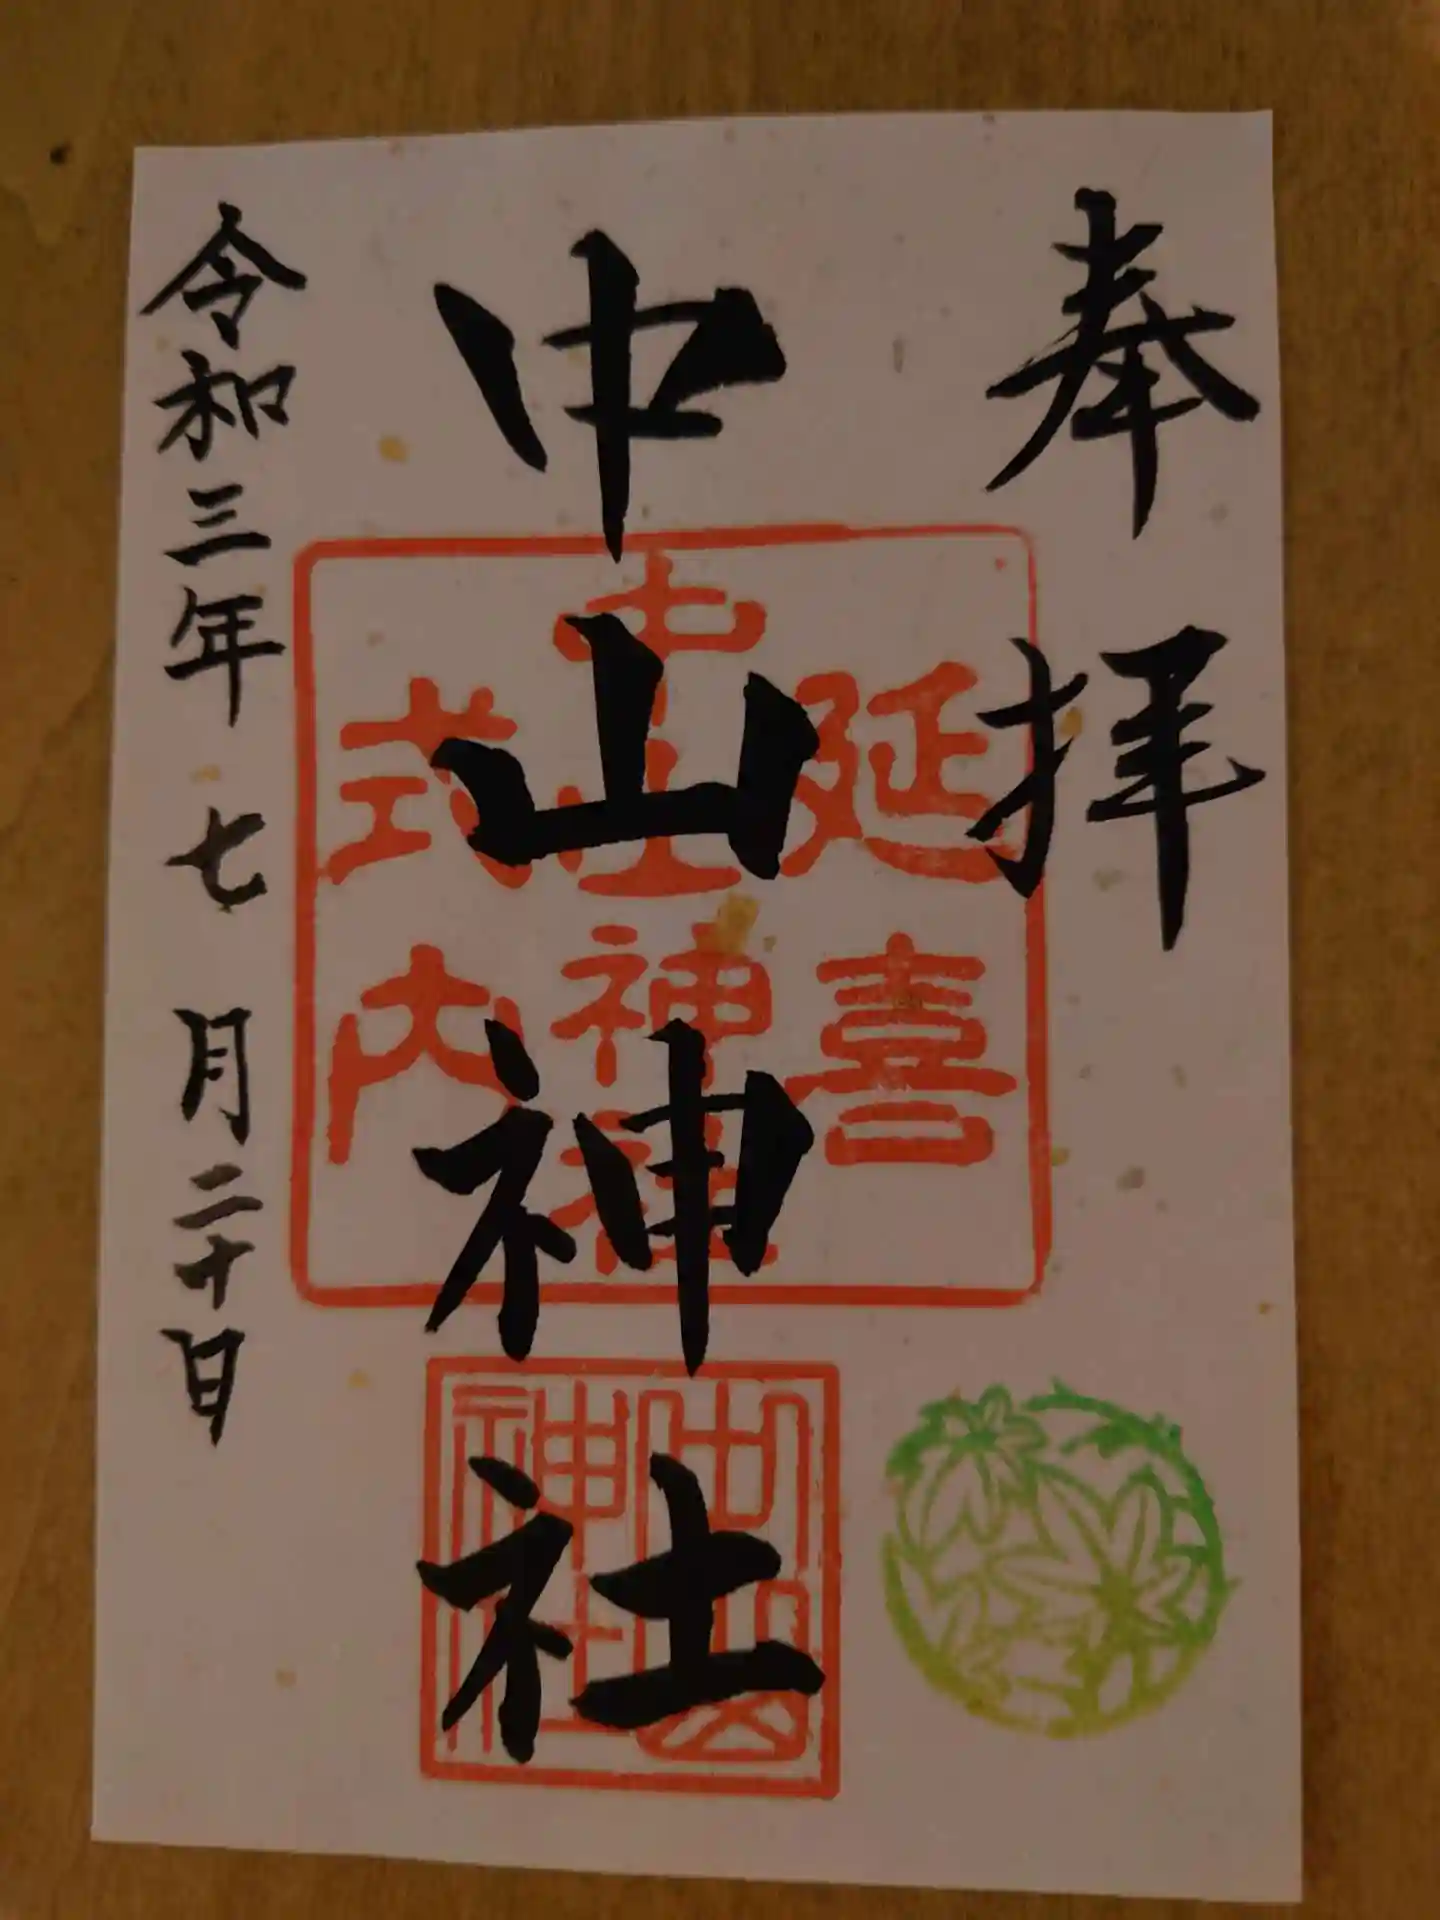 奉拝
延喜
中山神社
式内
中山神社
神社
令和三年七月二十日